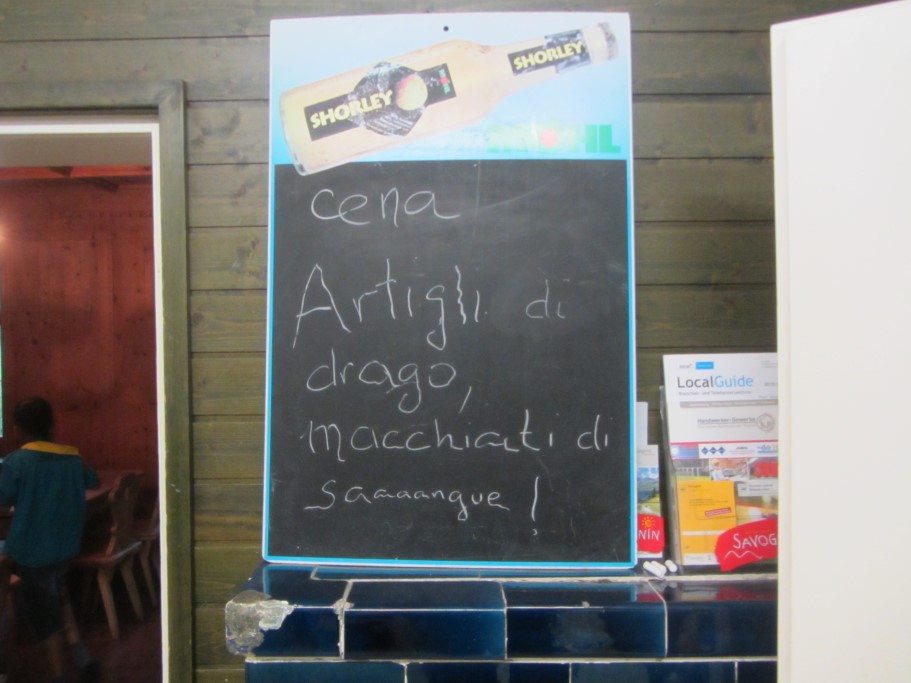 SHORLEY
SHORLEY
cena
Artigli di
drago,
macchiati di
saaaangue!
LocalGuide
SAVOG
NIN